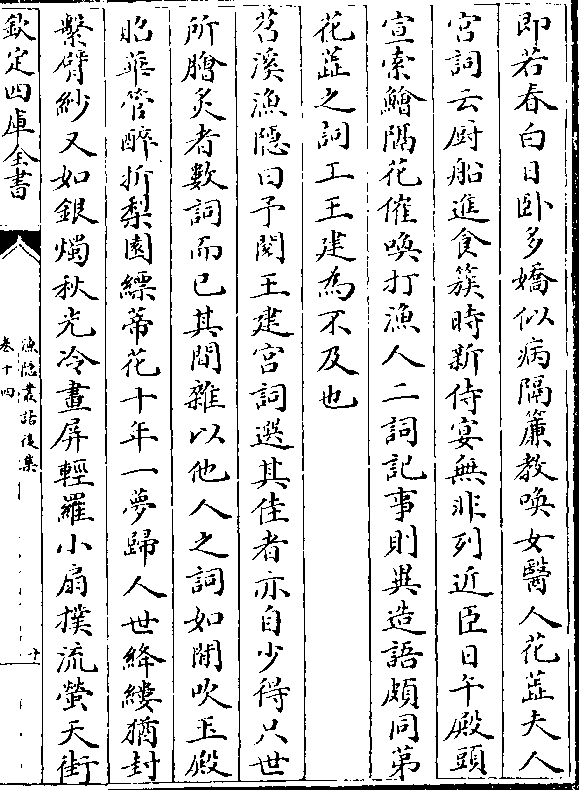 即若春白日臥多嬌似病隔簾教喚女醫人花蕋夫人
宮詞云厨船進食簇時新侍宴無非列近臣日午殿頭
宣索鱠隔花催喚打漁人二詞記事則異造語頗同第
花蕋之詞工王建為不及也
苕溪漁隱曰予閱王建宮詞選其佳者亦自少得只世
所膾炙者數詞而已其間雜以他人之詞如閒吹玉殿
昭華管醉折棃園縹蒂花十年一夢歸人世絳縷猶封
繫臂紗又如銀燭秋光冷畫屏輕羅小扇撲流螢天街
欽定四庫全書
漁隱叢話後集
卷十四
十